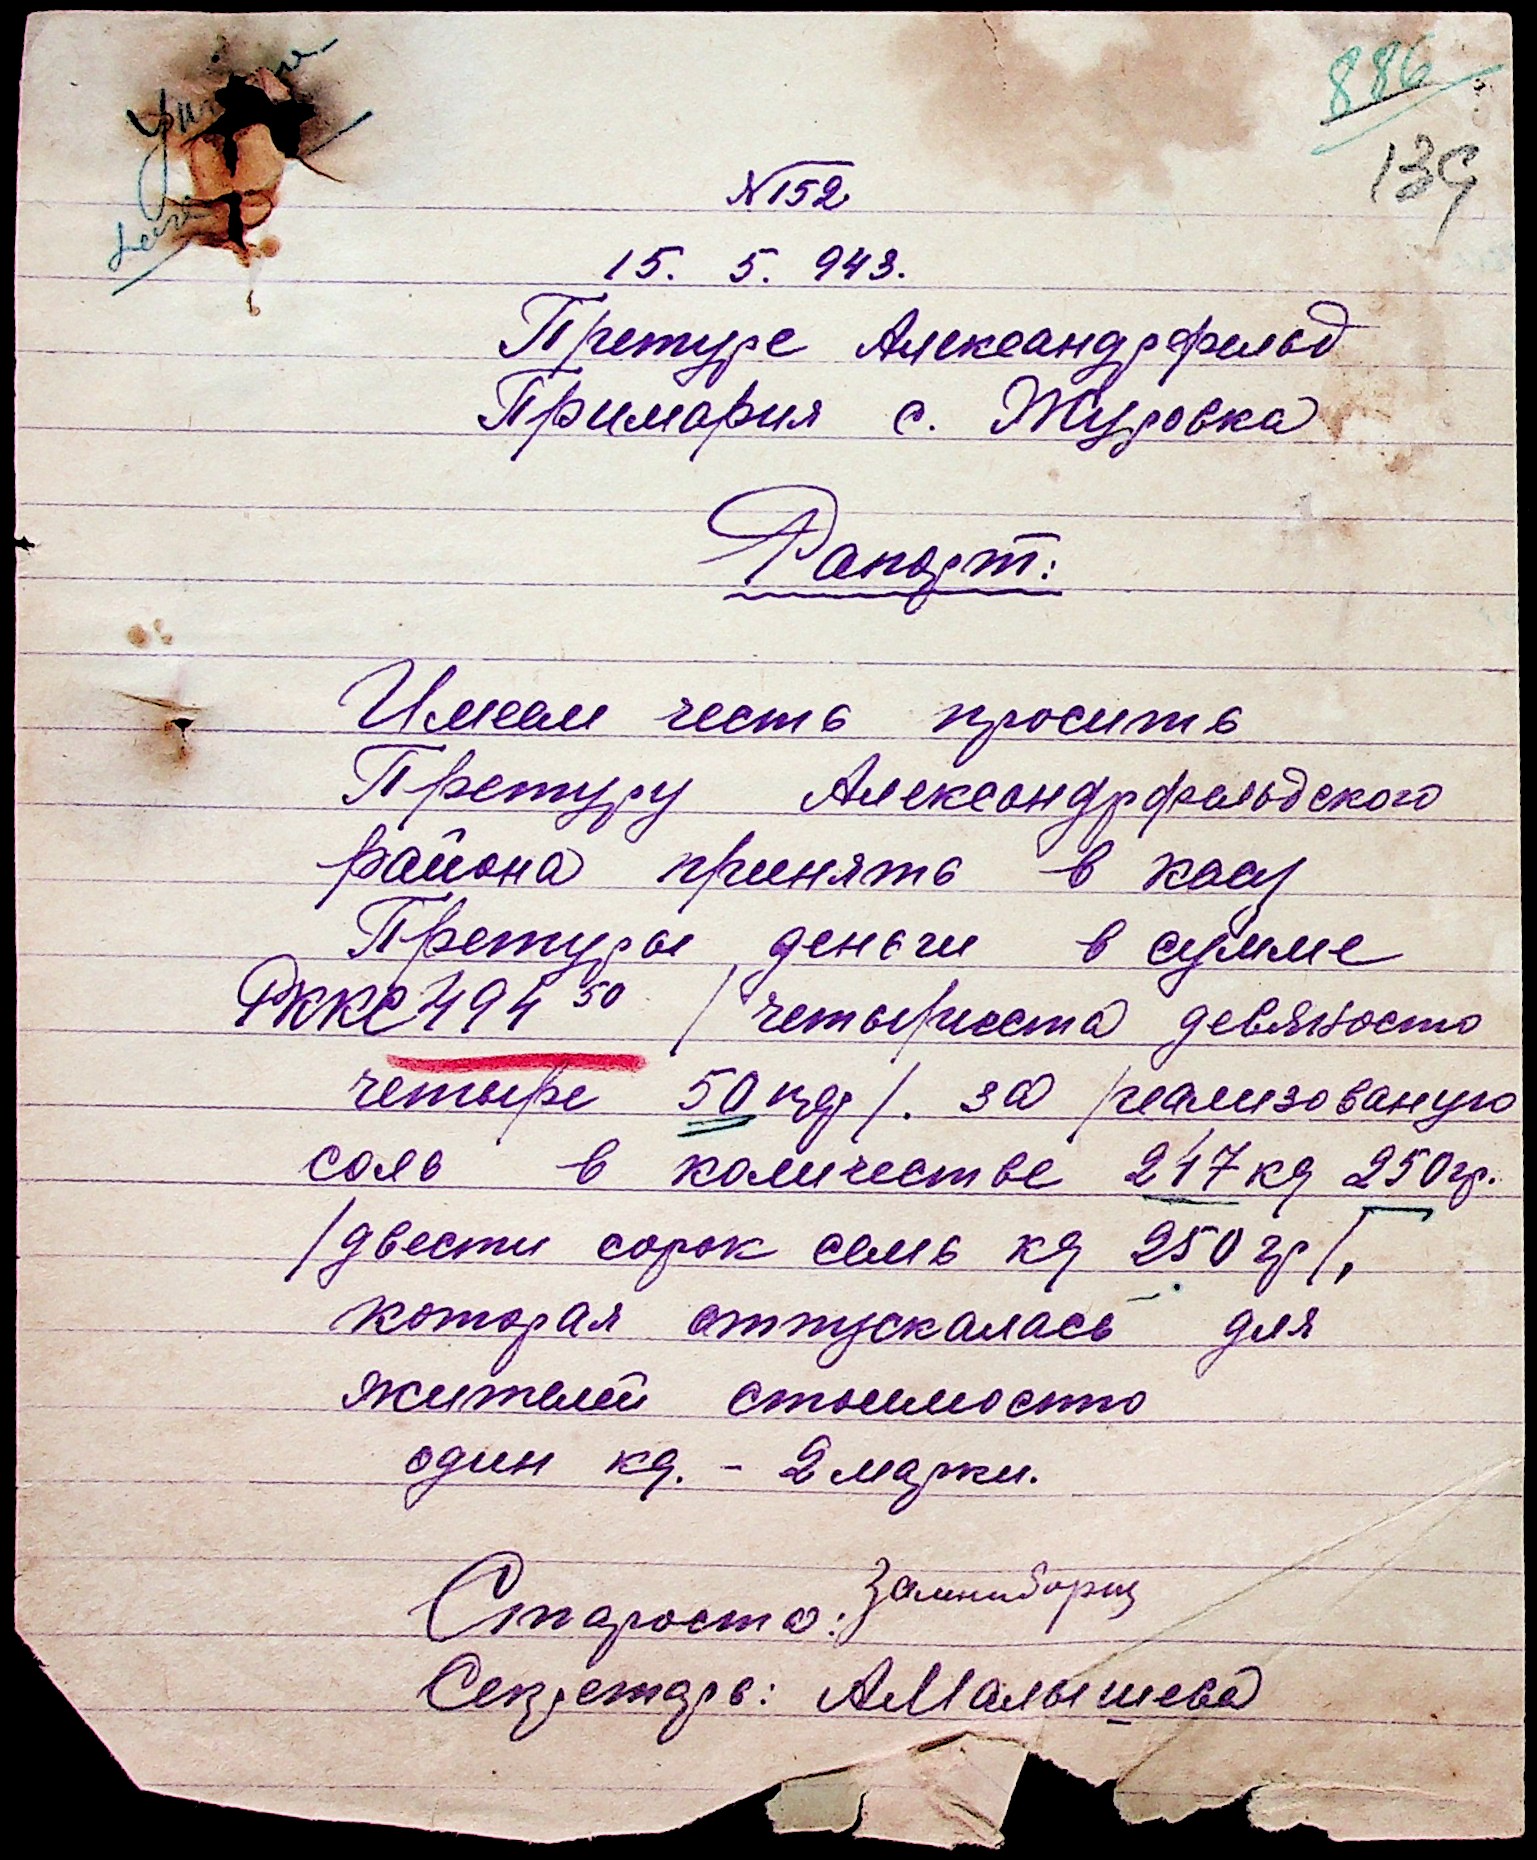 886
139
№152
15. 5. 943.
Претуре Александрфельд
Примария с. Журовка
Рапорт:
Имеем честь просить
Претуру Александрфельдского
района принять в касу
Претуры деньги в сумме
РККС 494 50 / четыриста девяносто
четыре 50 пф /. за реализованую
соль в количестве 247 кг 250 гр.
/ двести сорок семь кг 250 гр /,
которая отпускалась для
жителей стоимостю
один кг. - 2 марки.
Староста:
Секретарь: АМалышева